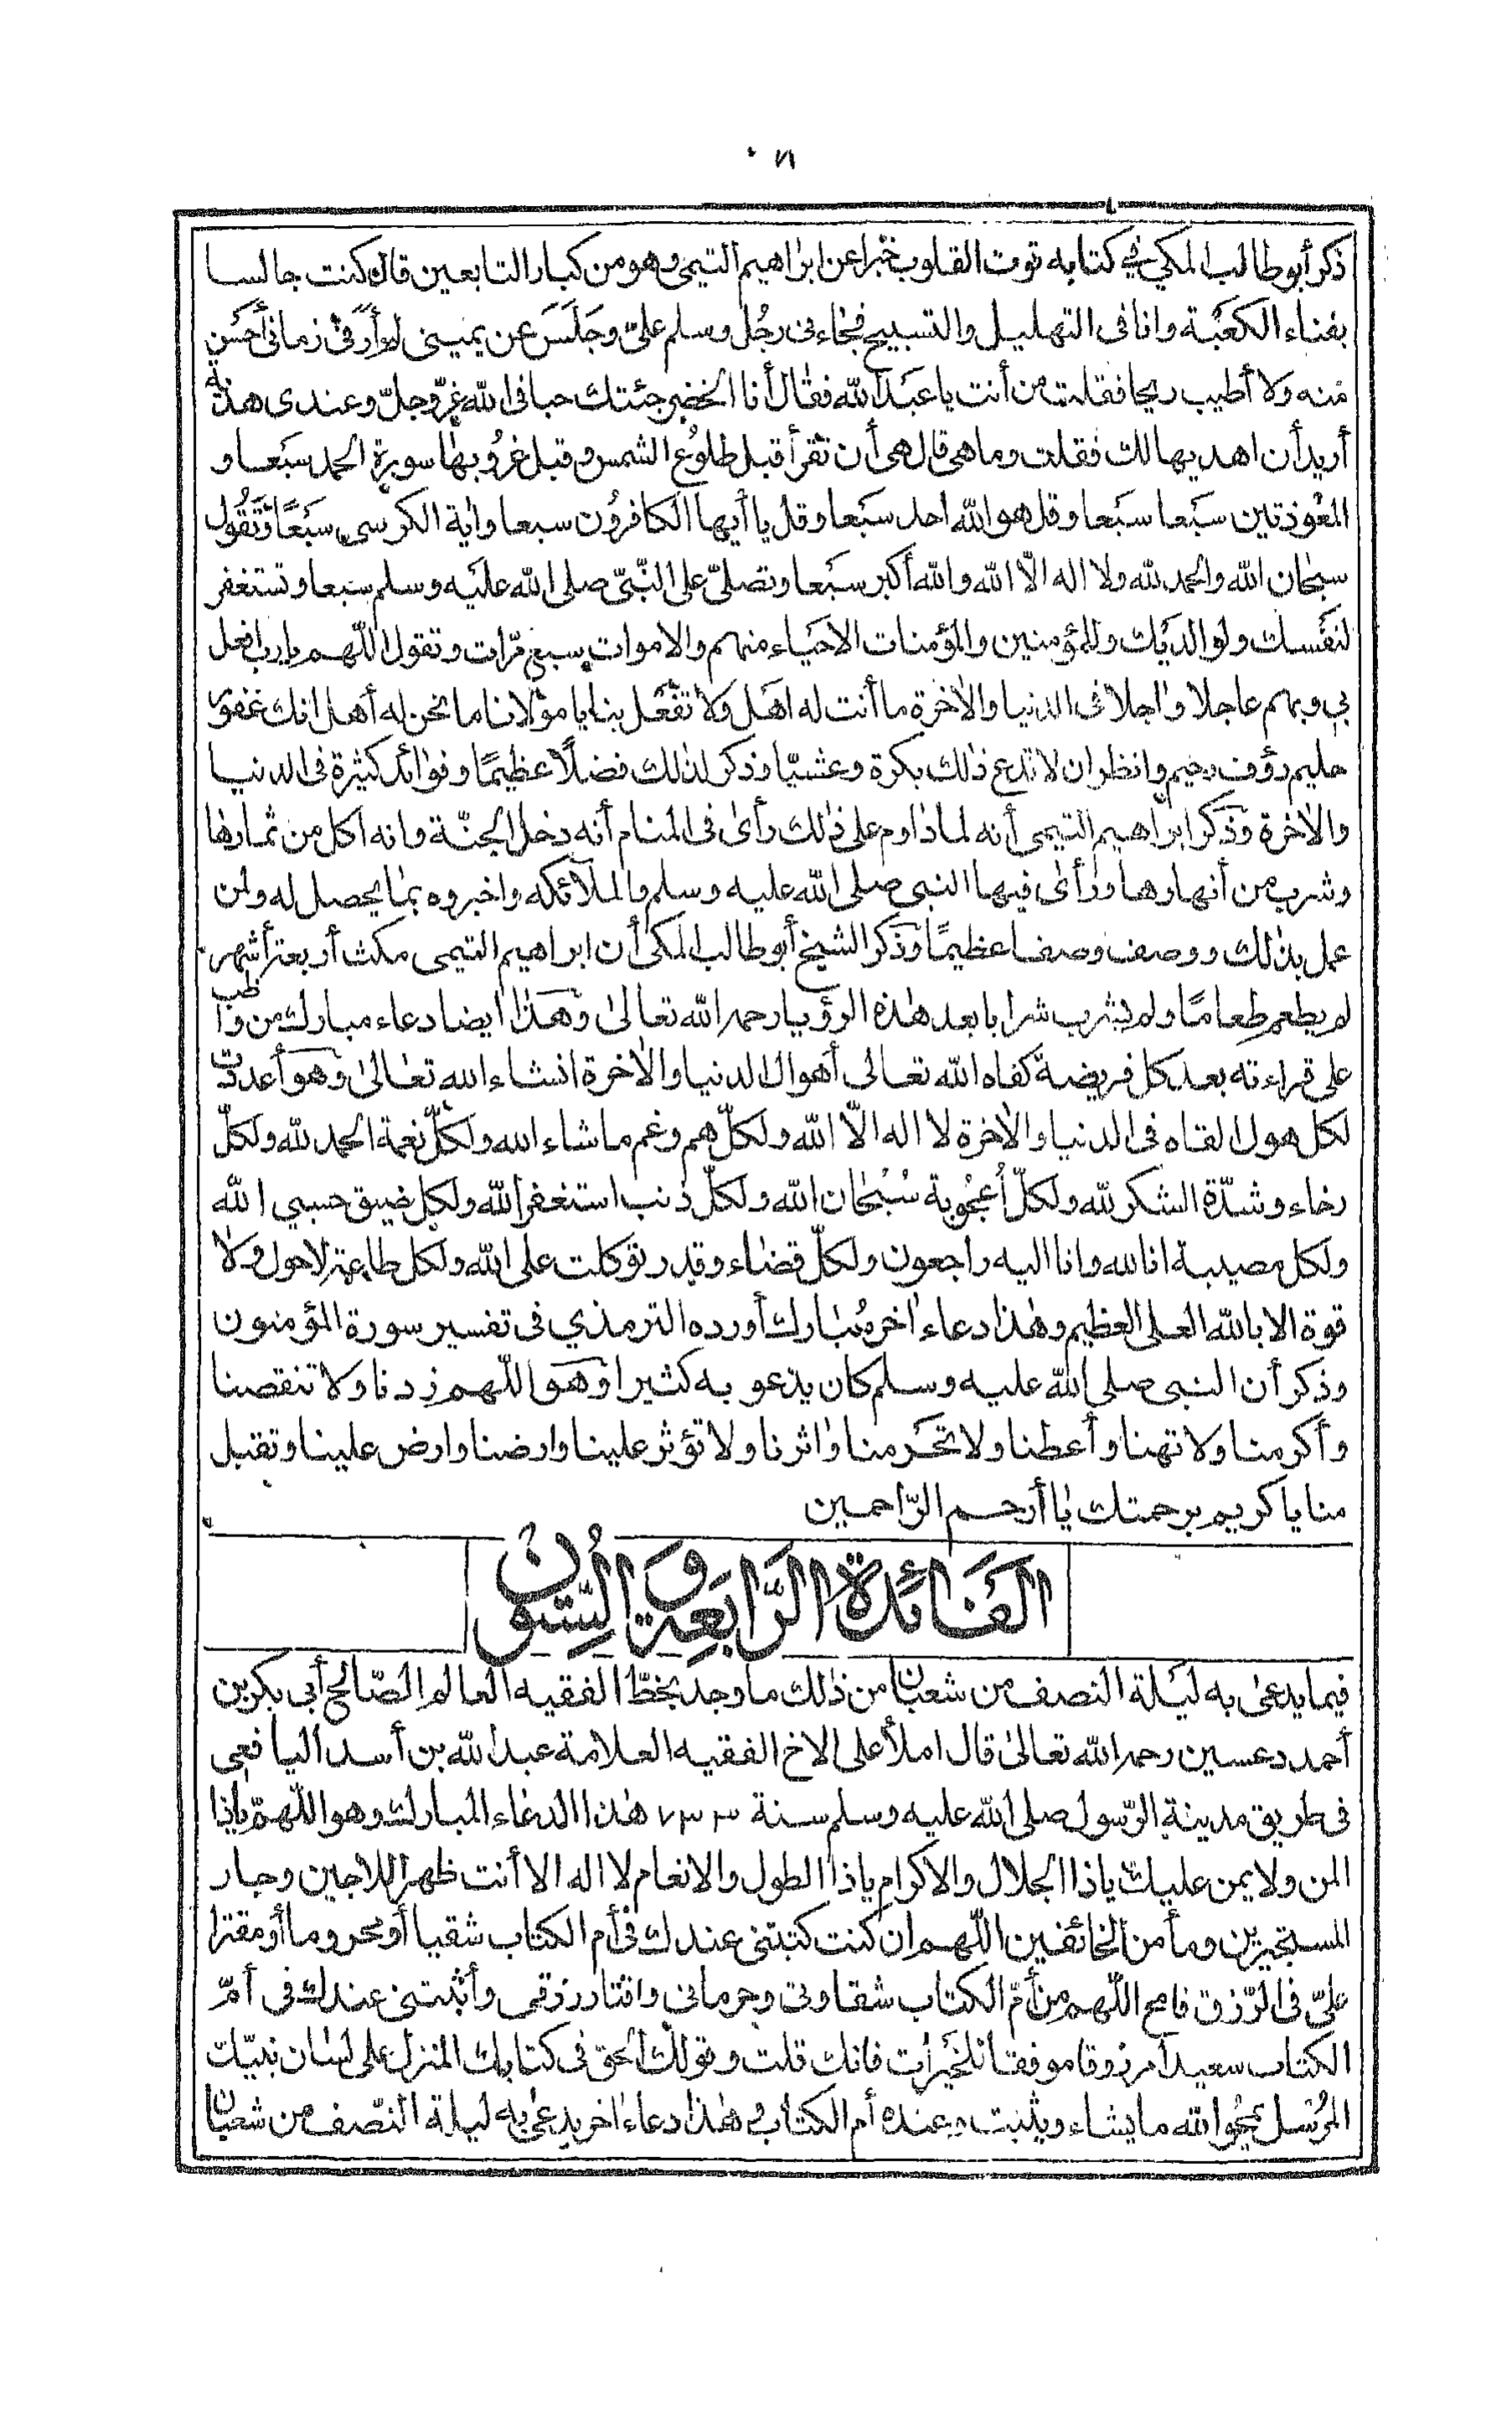 ٧١
ذكر أبو طالب المكي في كتابه قوت القلوب خبرا عن ابراهيم التيمي وهو من كبار التابعين قال كنت جالسا
بفناء الكعبة وانا في التهليل والتسبيح فجاءني رجل وسلم علي وجلس عن يميني لم أر في زماني أحسن
منه ولا أطيب ريحا فقلت من أنت يا عبد الله فقال أنا الخضر جئتك حبا في الله عز وجل وعندي هدية
أريد أن اهديها لك فقلت وما هي قال هي أن تقرأ قبل طلوع الشمس وقبل غروبها سورة الحمد سبعا و
المعوذتين سبعا سبعا وقل هو الله احد سبعا وقل يا أيها الكافرون سبعا واية الكرسي سبعًا وتقول
سبحان الله والحمد لله ولا اله الّا الله والله أكبر سبعا وتصلي على النبيّ صلى الله عليه وسلم سبعا وتستغفر
لنفسك ولوالديك وللمؤمنين والمؤمنات الاحياء منهم والاموات سبع مرّات وتقول اللّهم يا رب افعل
بي وبهم عاجلا واجلا في الدنيا والاخرة ما أنت له اهل ولا تفعل بنا يا مولانا ما نحن له أهل انك غفور
حليم رؤف رحيم وانظر ان لا تدع ذلك بكرة وعشيّا وذكر لذلك فضلًا عظيمًا وفوائد كثيرة في الدنيا
والاخرة وذكر ابراهيم التيمي أنه لما داوم على ذلك رأى في المنام أنه دخل الجنّة وانه اكل من ثمارها
وشرب من أنهارها ورأى فيها النبي صلى الله عليه وسلم والملائكه واخبروه بما يحصل له ولمن
عمل بذلك ووصف وصفا عظيمًا وذكر الشيخ أبو طالب المكي أن ابراهيم التيمي مكث أربعة أشهر
لم يطعم طعامًا ولم يشرب شرابا بعد هذه الرؤيا رحمه الله تعالى وهذا أيضا دعاء مبارك من واظب
على قراءته بعد كل فريضة كفاه الله تعالى أهوال الدنيا والاخرة انشاء الله تعالى وهو أعددت
لكل هول القاه في الدنيا والاخرة لا اله الّا الله ولكلّ هم وغم ما شاء الله ولكلّ نعمة الحمد لله ولكلّ
رخاء وشدّة الشكر لله ولكلّ أعجوبة سُبحان الله ولكلّ ذنب استغفر الله ولكل ضيق حسبي الله
ولكل مصيبة انا لله وانا اليه راجعون ولكلّ قضاء وقدر توكلت على الله ولكل طاعة لا حول ولا
قوة الا بالله العلي العظيم وهذا دعاء اخر مُبارك أورده الترمذي في تفسير سورة المؤمنون
وذكر أن النبي صلى الله عليه وسلم كان يدعو به كثيرا وهو اللّهم زدنا ولا تنقصنا
وأكرمنا ولا تهنا وأعطنا ولا تحرمنا واثرنا ولا تؤثر علينا وارضنا وارض علينا وتقبل
منا يا كريم برحمتك يا أرحم الرّاحمين
الفَائدة الرَّابعة والسِّتون
فيما يدعى به ليلة النصف من شعبان من ذلك ما وجد بخطّ الفقيه العالم الصّالح أبي بكر بن
أحمد دعسين رحمه الله تعالى قال املأ على الاخ الفقيه العلامة عبد الله بن أسد اليافعي
في طريق مدينة الرّسول صلى الله عليه وسلم سنة ٧٣٣ هذا الدعاء المبارك وهو اللّهمّ يا ذا
المن ولا يمن عليك يا ذا الجلال والاكرام يا ذا الطول والانعام لا اله الا أنت ظهر اللاجين وجار
المستجيرين ومأمن الخائفين اللّهم ان كنت كتبتني عندك في أم الكتاب شقيا أو محروما أو مقترا
عليّ في الرّزق فامح اللّهم من أمّ الكتاب شقاوتي وحرماني واقتار رزقي وأثبتني عندك في أمّ
الكتاب سعيدا مرزوقا موفقا للخيرات فانك قلت وقولك الحق في كتابك المنزل على لسان نبيّك
المرُسل يمحُوا الله ما يشاء ويثبت وعنده أم الكتاب وهذا دعاء اخر يدعى به ليلة النّصف من شعبان